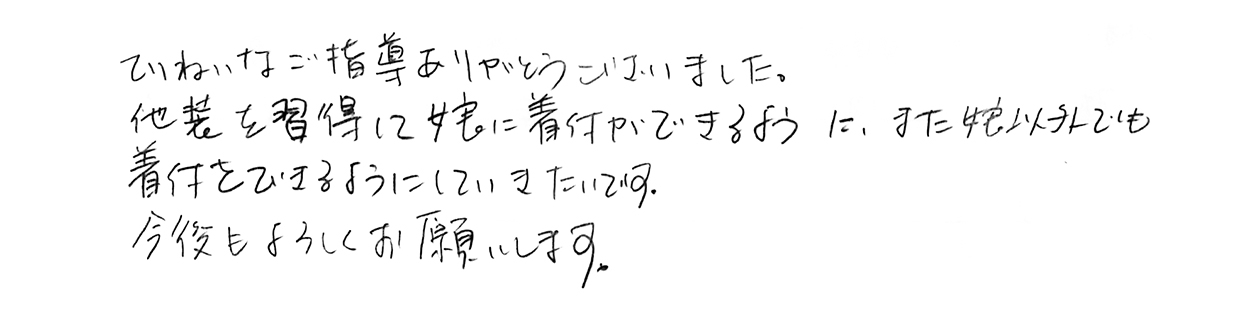 ていねいなご指導ありがとうございました。
他装を習得して娘に着付ができるように、また娘以外でも
着付をできるようにしていきたいです。
今後もよろしくお願いします。